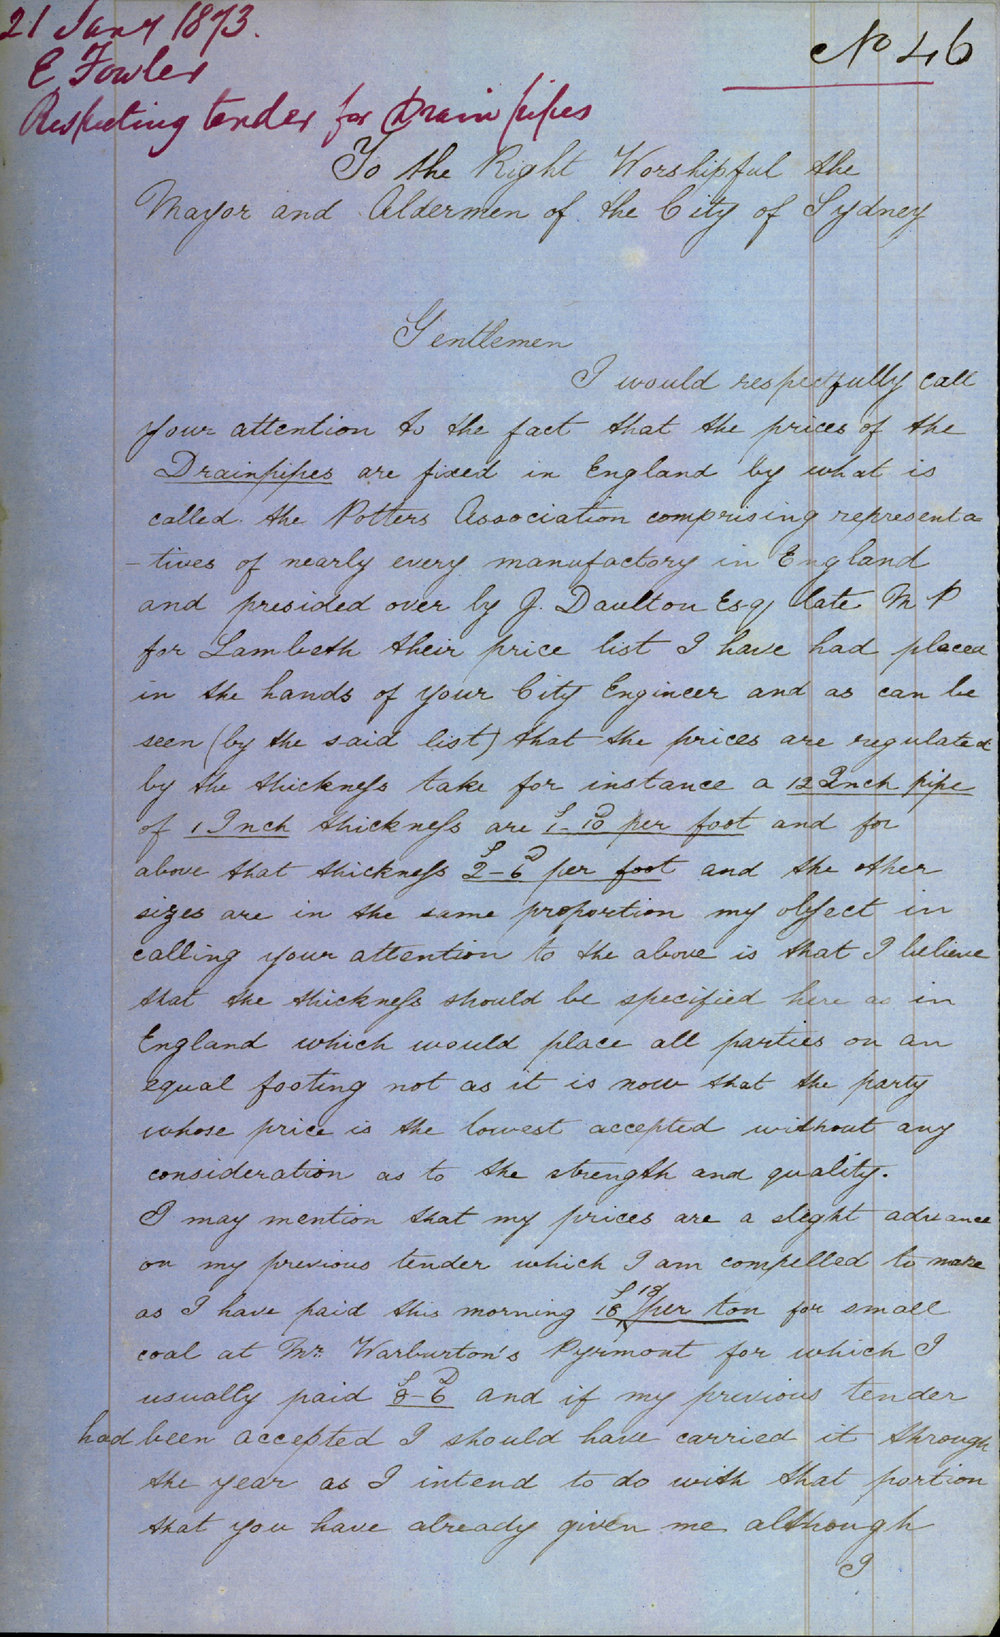 21 Jany 1873.
E Fowler
Respecting tender for Drain pipes
No 46
To the Right Worshipful the
Mayor and Aldermen of the City of Sydney
Gentlemen
I would respectfully call
your attention to the fact that the prices of the
Drainpipes are fixed in England by what is
called the Potters Association comprising representa
-tives of nearly every manufactory in England
and presided over by J. Daulton Esq late M P
for Lambeth their price list I have had placed
in the hands of your City Engineer and as can be
seen (by the said list) that the prices are regulated
by the thickness take for instance a 12 Inch pipe
of 1 Inch thickness are 1S-10D per foot and for
above that thickness 2S-6D per foot and the other
sizes are in the same proportion my object in
calling your attention to the above is that I believe
that the thickness should be specified here as in
England which would place all parties on an
equal footing not as it is now that the party
whose price is the lowest accepted without any
consideration as to the strength and quality.
I may mention that my prices are a slight advance
on my previous tender which I am compelled to make
as I have paid this morning per ton for small
coal at Mr. Warburton's Pyrmont for which I
usually paid 8S-6D and if my previous tender
had been accepted I should have carried it through
the year as I intend to do with that portion
that you have already given me although
I